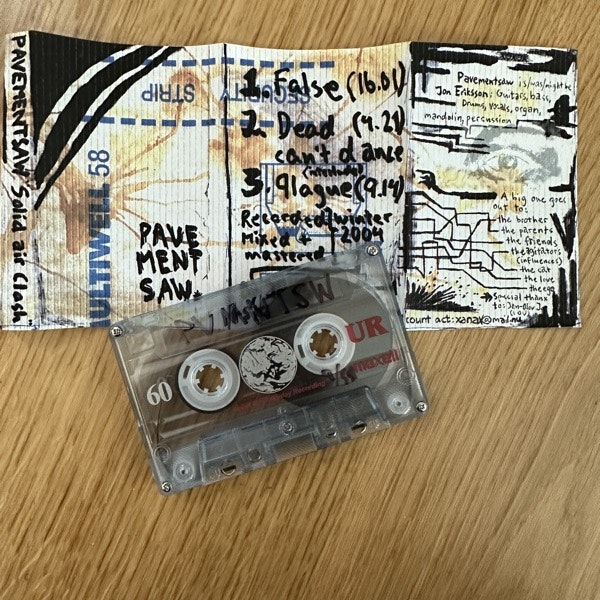 PAVEMENTSAW "Solid air Clash"
SECURITY
STRIP
ULTIWELL 58
PAVE
MENT
SAW.
1. False (16.01)
2. Dead (4.21)
can't dance
3. Plague (9.14)
Recorded winter
Mixed + 2004
mastered
Pavementsaw is/was/might be
Jon Eriksson: Guitars, bass,
Drums, vocals, organ,
mandolin, percussion
A big one goes
out to:
the brother
the parents
the friends
the agitators
(influences)
the cat
the love
the egg
Special thanx
to: Jan-Olov J
60
UR
maxell